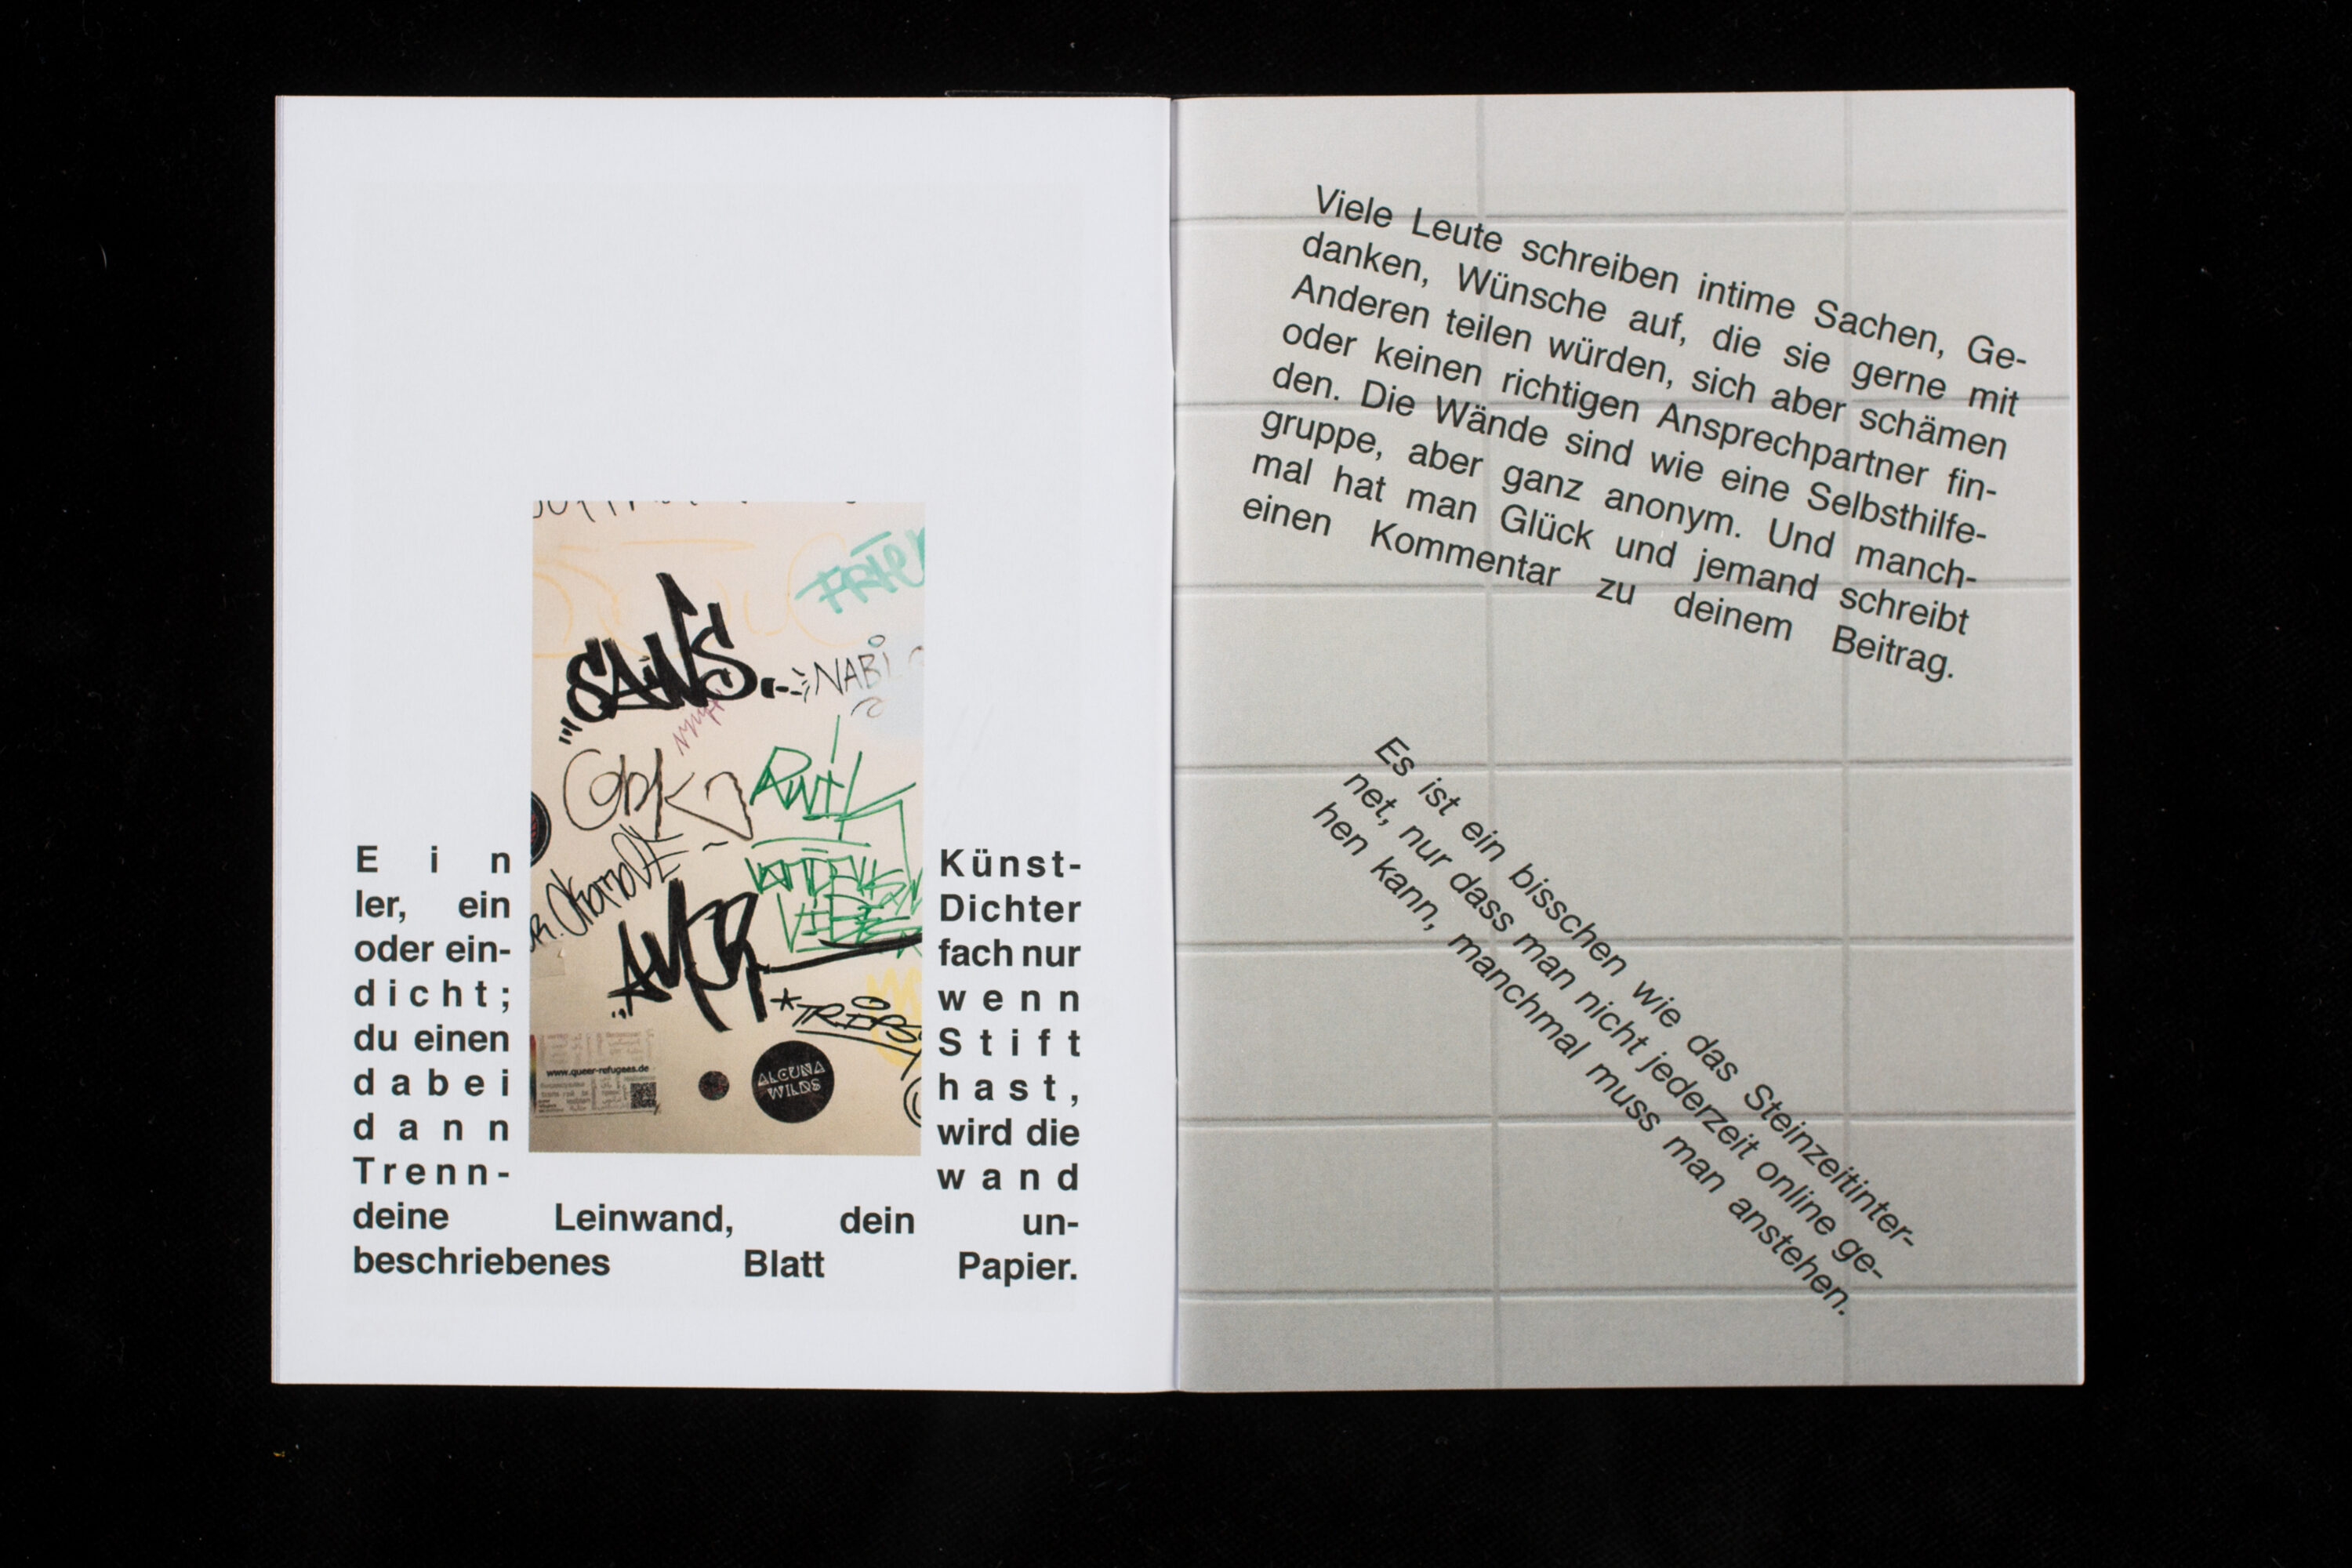 SAINS
NABI
AMOR
*TRIPS
www.queer-refugees.de
ALCUNA
WILDS
Ein Künst-
ler, ein Dichter
oder ein- fach nur
dicht; wenn
du einen Stift
dabei hast,
dann wird die
Trenn- wand
deine Leinwand, dein un-
beschriebenes Blatt Papier.
Viele Leute schreiben intime Sachen, Ge-
danken, Wünsche auf, die sie gerne mit
Anderen teilen würden, sich aber schämen
oder keinen richtigen Ansprechpartner fin-
den. Die Wände sind wie eine Selbsthilfe-
gruppe, aber ganz anonym. Und manch-
mal hat man Glück und jemand schreibt
einen Kommentar zu deinem Beitrag.
Es ist ein bisschen wie das Steinzeitinter-
net, nur dass man nicht jederzeit online ge-
hen kann, manchmal muss man anstehen.